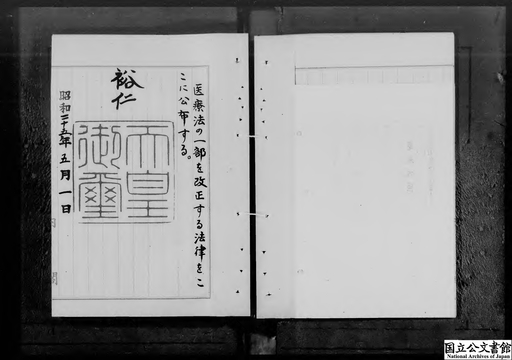 医療法の一部を改正する法律をこ
こに公布する。
裕仁
天皇
御璽
昭和二十五年五月一日
国立公文書館
National Archives of Japan